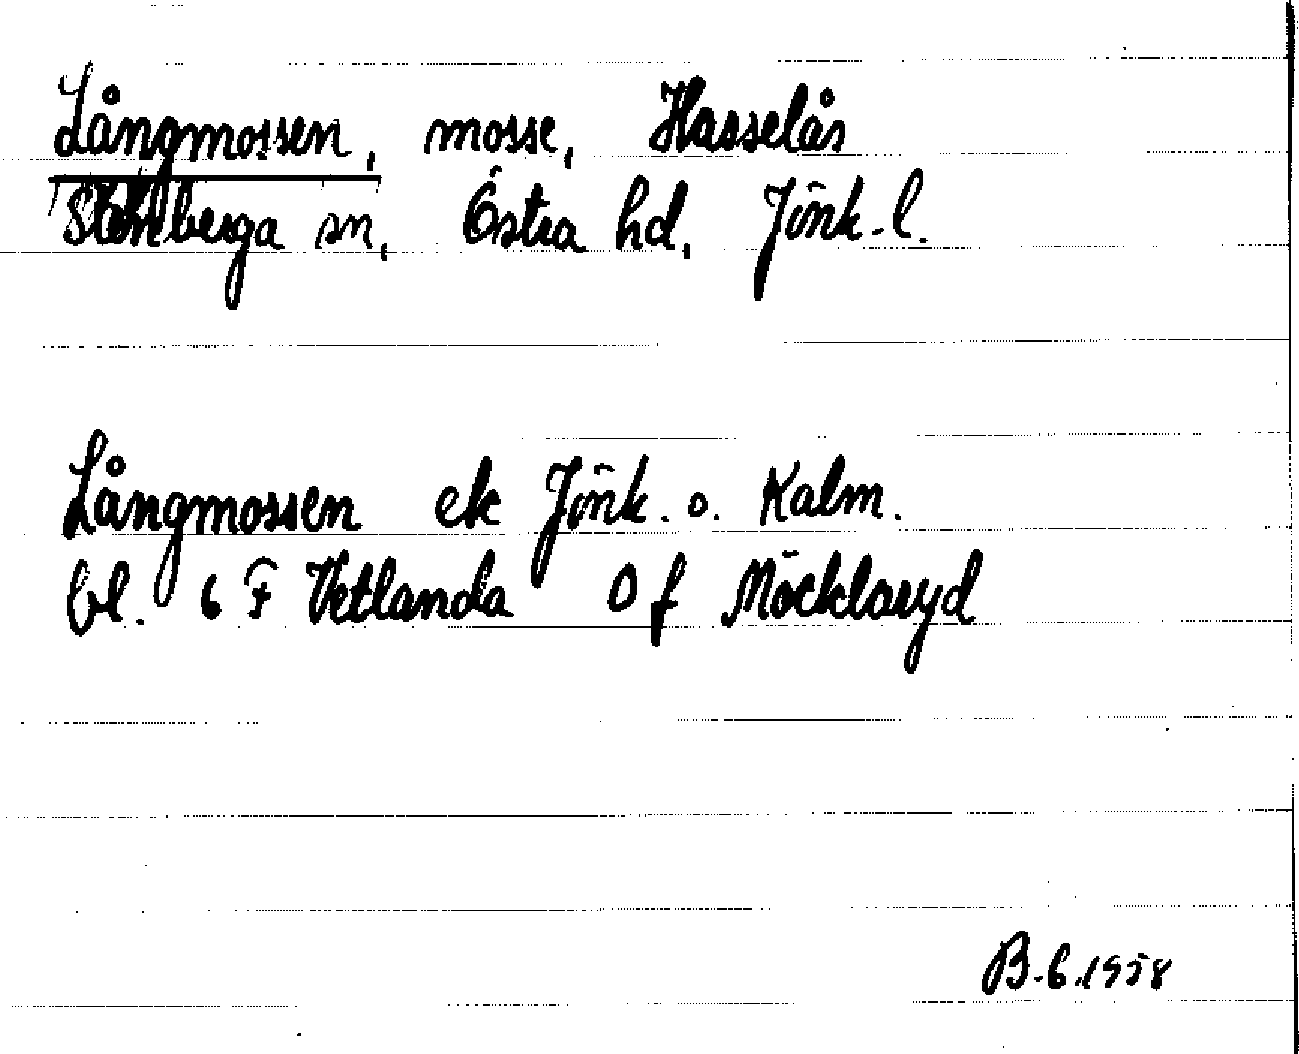 Långmossen, mosse, Hasselås
Stenberga sn, Östra hd, Jönk.l.
Långmossen ek Jönk. o. Kalm.
bl. 6 F Vetlanda O f Möcklaryd
B.G.1958